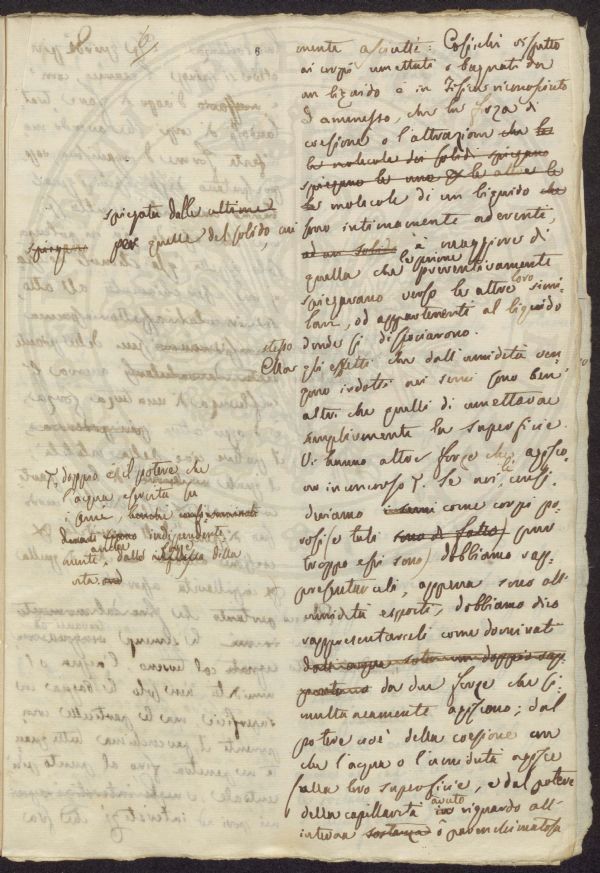 mente asciutti: Cosichi rispetto
ai corpi umettati o bagnati da
un liquido è in Fisica riconosciuto
ed ammesso, che la forza di
coesione o l'attrazione che le
le molecole dei solidi spiegano
spiegano le une le altre le
le molecole di un liquido che
sono intimamente aderenti,
ad un solido è maggiore di
quella che le prime preventivamente
spiegavano verso le altre loro simi-
lari, ed appartenenti al liquido
donde si dissociarono.
spiegata dalle ultime
spiegano per quelle del solido, cui
stesso
Che gli effetti che dall'umidità ven-
gono indotti nei semi sono ben
altri che quelli di umettarne
semplicemente la superficie.
Vi hanno altre forze che agisco-
no in concorso. Se noi li consi-
deriamo i semi come corpi po-
rosi (e tali sono di fatto) pur
troppo essi sono) dobbiamo rap-
presentarceli, appena sono all'
umidità esposti, dobbiamo dico
rappresentarceli come dominati
dall'acqua sotto un doppio rap-
portano da due forze che si-
multaneamente agiscono; dal
potere cioè della coesione con
che l'acqua o l'umidità agisce
sulla loro superficie, e dal potere
della capillarità avuto in riguardo all'
interna sostanza o parenchimatosa
doppio è il potere che
l'acqua esercita su
i semi, benche
indipendente
mente, anche dalla influenza della
vita